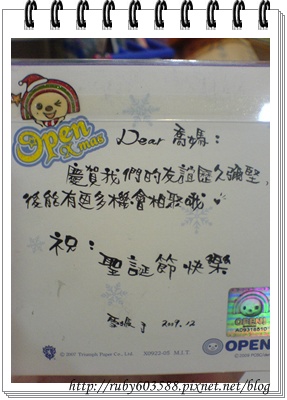 Open
Xmas
Dear 喬媽：
慶賀我們的友誼歷久彌堅，
後能有更多機會相聚哦
祝：
聖誕節快樂
2009.12
© 2007 Triumph Paper Co., Ltd.
M.I.T.
OPEN
http://ruby603588.pixnet.net/blog